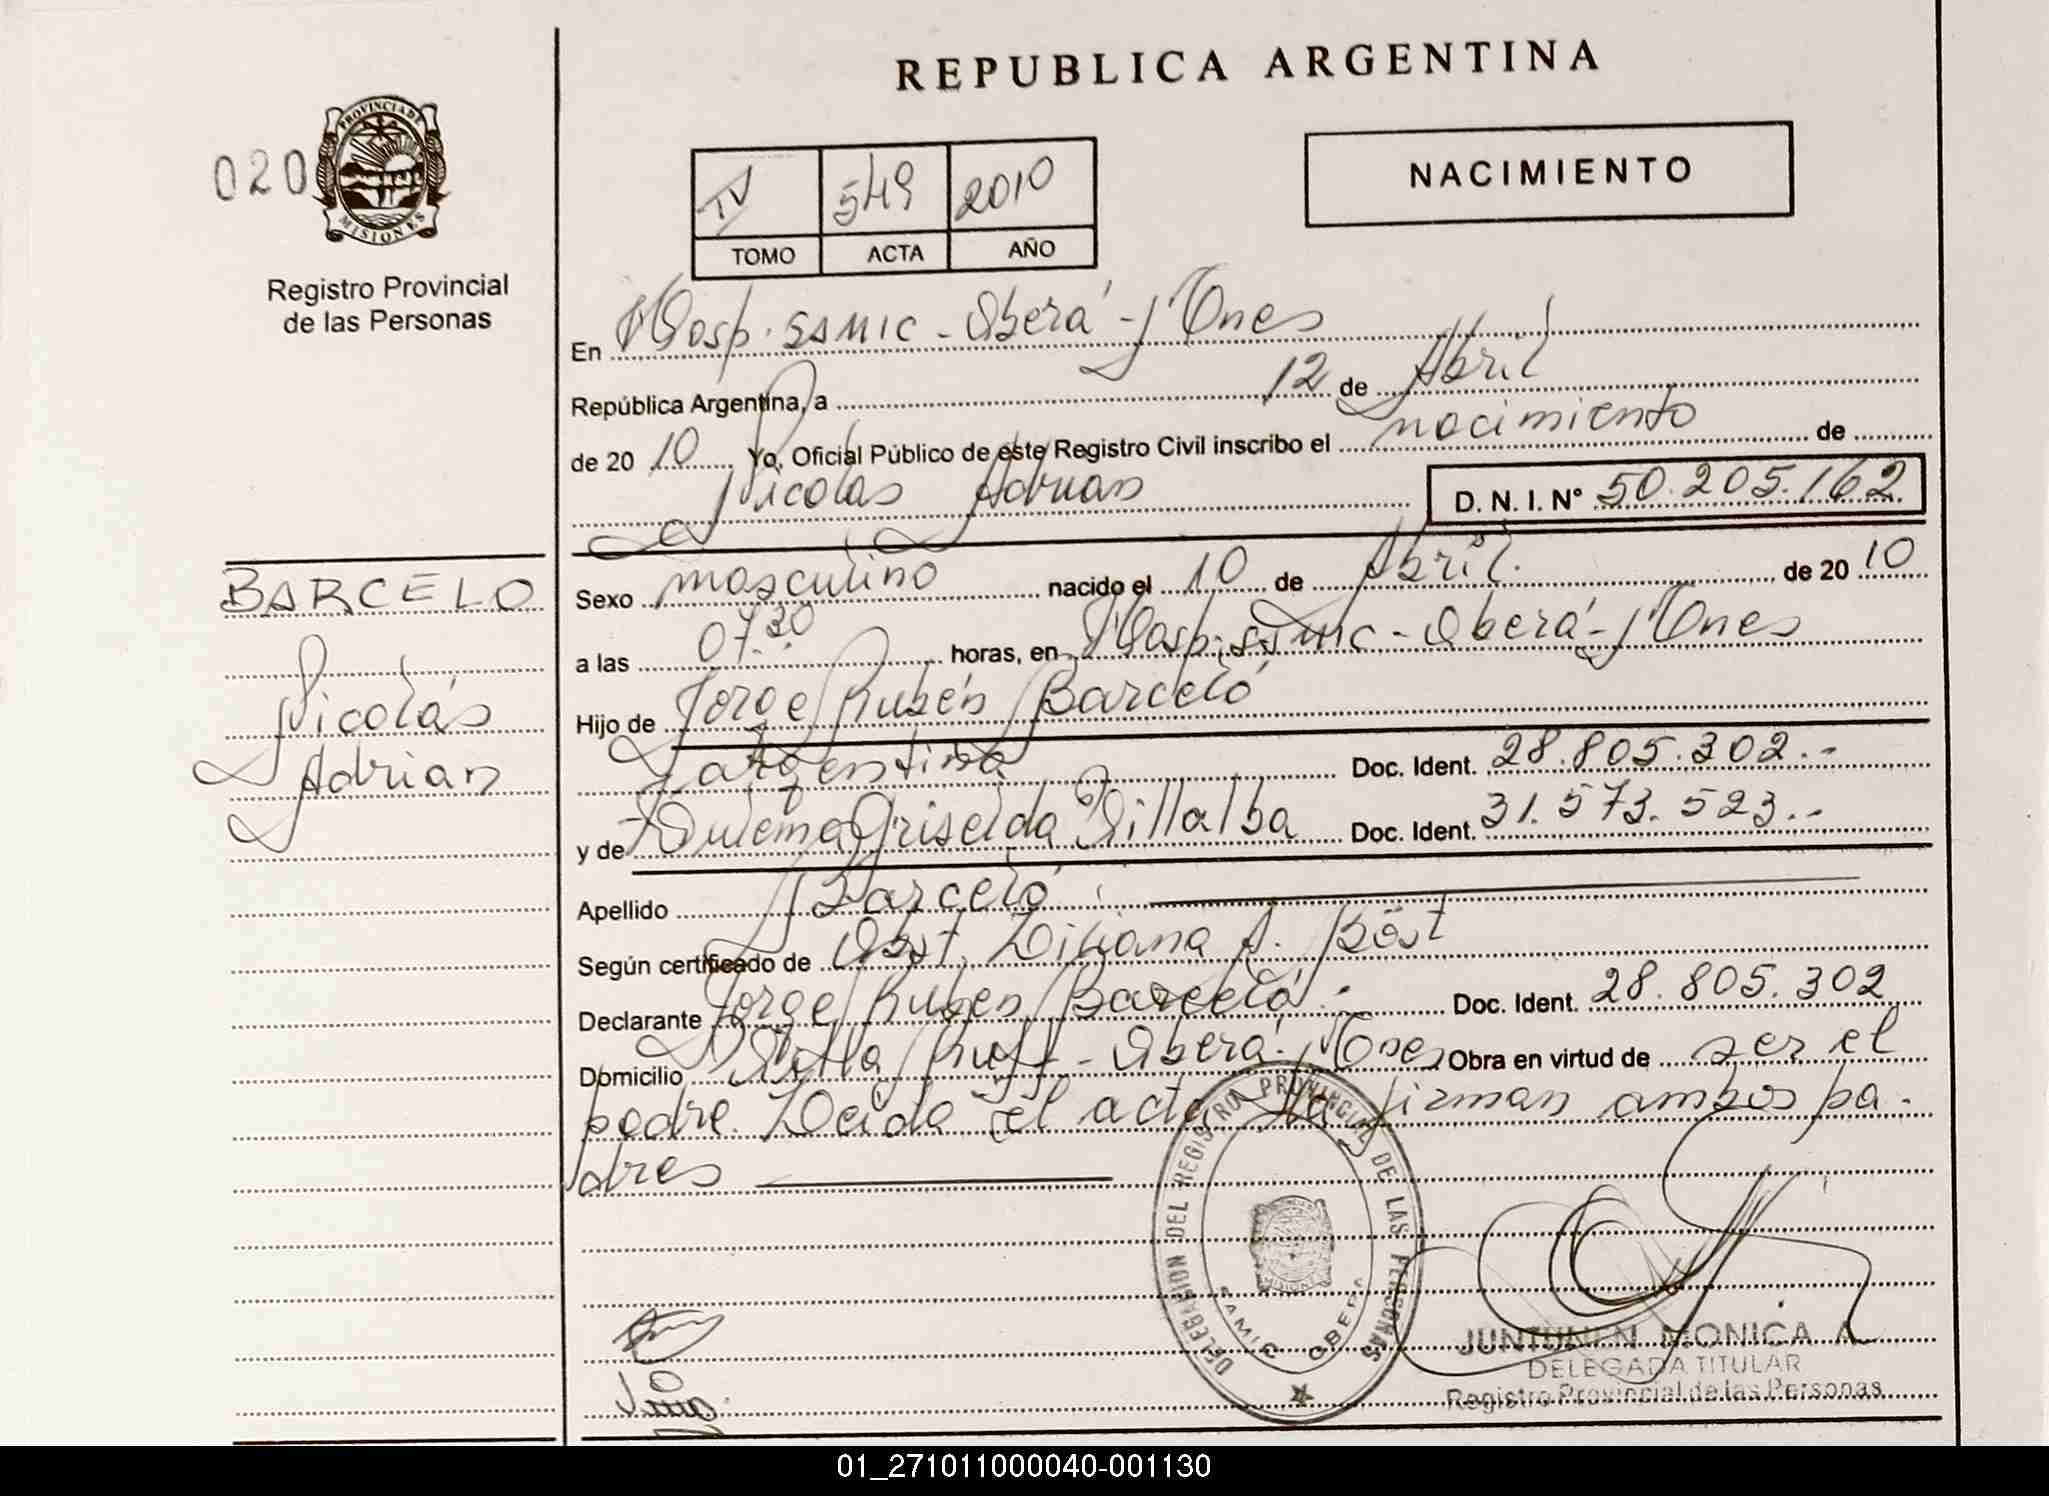 REPUBLICA ARGENTINA
020
PROVINCIA DE
MISIONES
Registro Provincial
de las Personas
IV 549 2010
TOMO ACTA AÑO
NACIMIENTO
En Hosp. SAMIC - Oberá - Mnes
República Argentina, a 12 de Abril
de 20 10 Yo, Oficial Público de este Registro Civil inscribo el nacimiento de
Nicolás Adrian
D. N. I. N° 50.205.162
BARCELO
Nicolás
Adrian
Sexo masculino nacido el 10 de Abril. de 20 10
a las 07.30 horas, en Hosp. SAMIC - Oberá - Mnes
Hijo de Jorge Rubén Barceló
argentina Doc. Ident. 28.805.302.-
y de Griselda Villalba Doc. Ident. 31.573.523.-
Apellido Barceló
Según certificado de Obst. Liliana A. Böst
Declarante Jorge Rubén Barceló.- Doc. Ident. 28.805.302
Domicilio Villa Ruff - Oberá - Mnes Obra en virtud de ser el
padre. Leida el acta la firman ambos pa-
dres
DELEGACION DEL REGISTRO PROVINCIAL DE LAS PERSONAS
SAMIC OBERA
MISIONES
JUNTUNEN MONICA A
DELEGADA TITULAR
Registro Provincial de las Personas
01_271011000040-001130